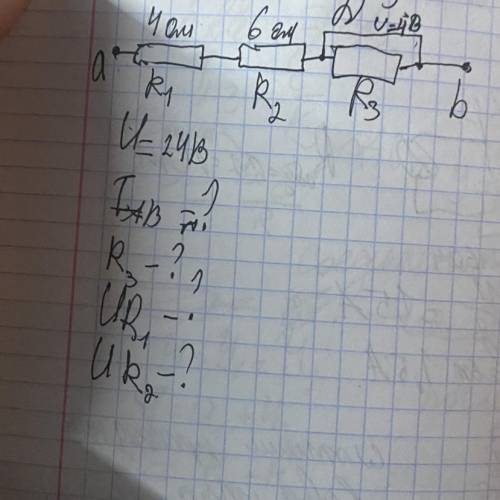 4 ом 6 ом U=4В
a R₁ R₂ R₃ b
U=24В
I AB -?
R₃ -?
UR₁ -?
UR₂ -?